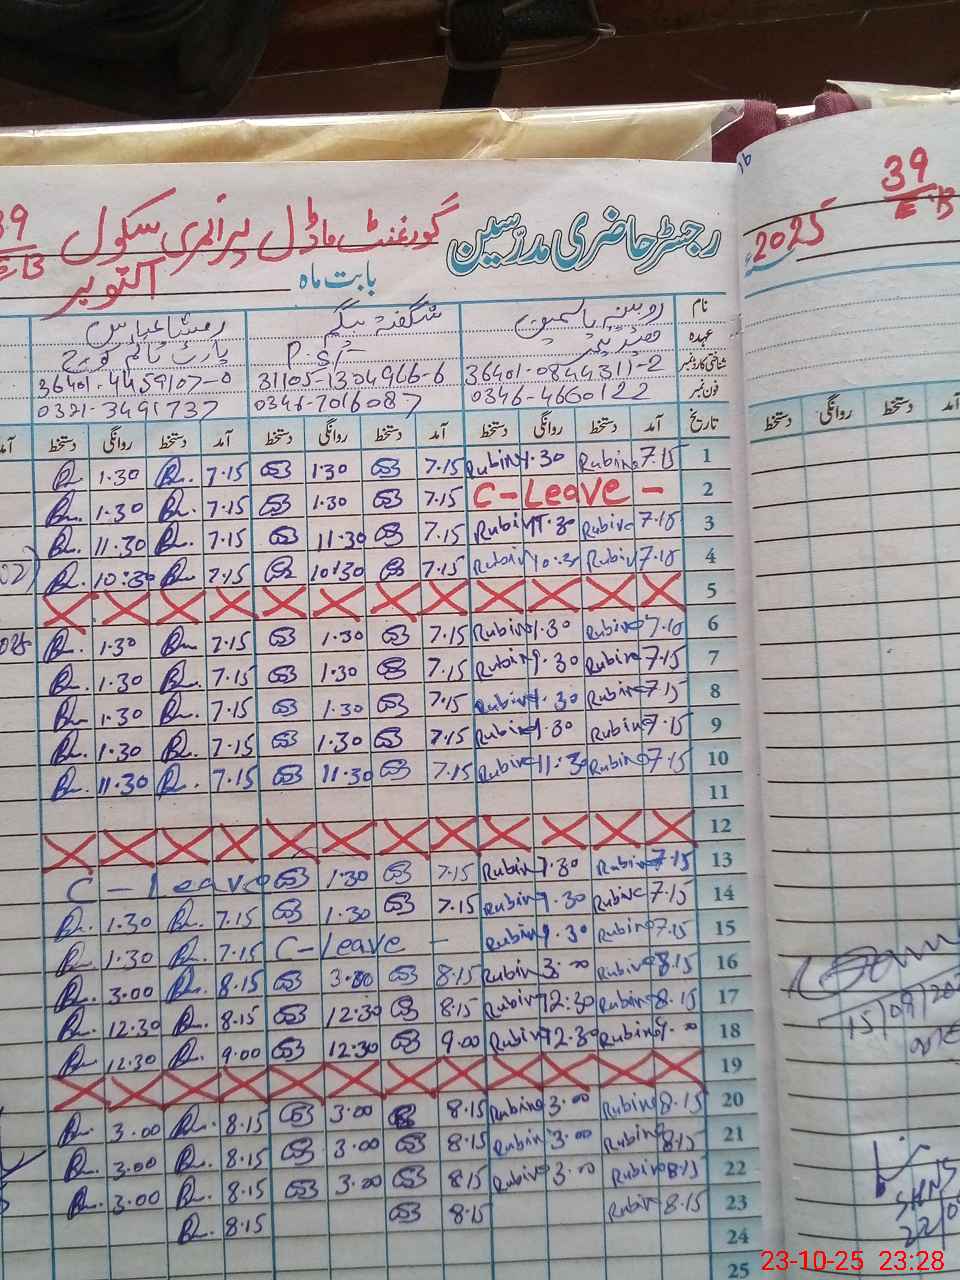 رجسٹر حاضری مدرسین گورنمنٹ ماڈل پرائمری سکول 39
E.B
بابت ماہ اکتوبر
2025ء
39
E.B
16
نام روبینہ یاسمین شگفتہ بیگم رمشا عباس
عہدہ P.S.T پارٹ ٹائم کوچ
شناختی کارڈ نمبر 36401-0844311-2 31105-1304966-6 36401-4459107-0
فون نمبر 0346-4660122 0346-7016087 0321-3491737
تاریخ آمد دستخط روانگی دستخط آمد دستخط روانگی دستخط آمد دستخط روانگی دستخط
آمد دستخط روانگی دستخط
1 7.15 Rubina 1.30 Rubina 7.15 1.30 7.15 1.30
2 C-Leave - 7.15 1.30 7.15 1.30
3 7.15 Rubina 11.30 Rubina 7.15 11.30 7.15 11.30
4 7.15 Rubina 10:30 Rubina 7.15 10:30 7.15 10:30
5
6 7.15 Rubina 1.30 Rubina 7.15 1.30 7.15 1.30
7 7.15 Rubina 1.30 Rubina 7.15 1.30 7.15 1.30
8 7.15 Rubina 1.30 Rubina 7.15 1.30 7.15 1.30
9 7.15 Rubina 1.30 Rubina 7.15 1.30 7.15 1.30
10 7.15 Rubina 11.30 Rubina 7.15 11.30 7.15 11.30
11
12
13 7.15 Rubina 1.30 Rubina 7.15 1.30 C-Leave
14 7.15 Rubina 1.30 Rubina 7.15 1.30 7.15 1.30
15 7.15 Rubina 1.30 Rubina C-leave - 7.15 1.30
16 8.15 Rubina 3.00 Rubina 8.15 3.00 8.15 3.00
17 8.15 Rubina 12:30 Rubina 8.15 12:30 8.15 12.30
18 9.00 Rubina 12.30 Rubina 9.00 12.30 9.00 12.30
19
20 8.15 Rubina 3.00 Rubina 8.15 3.00 8.15 3.00
21 8.15 Rubina 3.00 Rubina 8.15 3.00 8.15 3.00
22 8.15 Rubina 3.00 Rubina 8.15 3.00 8.15 3.00
23 8.15 Rubina 8.15 8.15
24
25
23-10-25 23:28